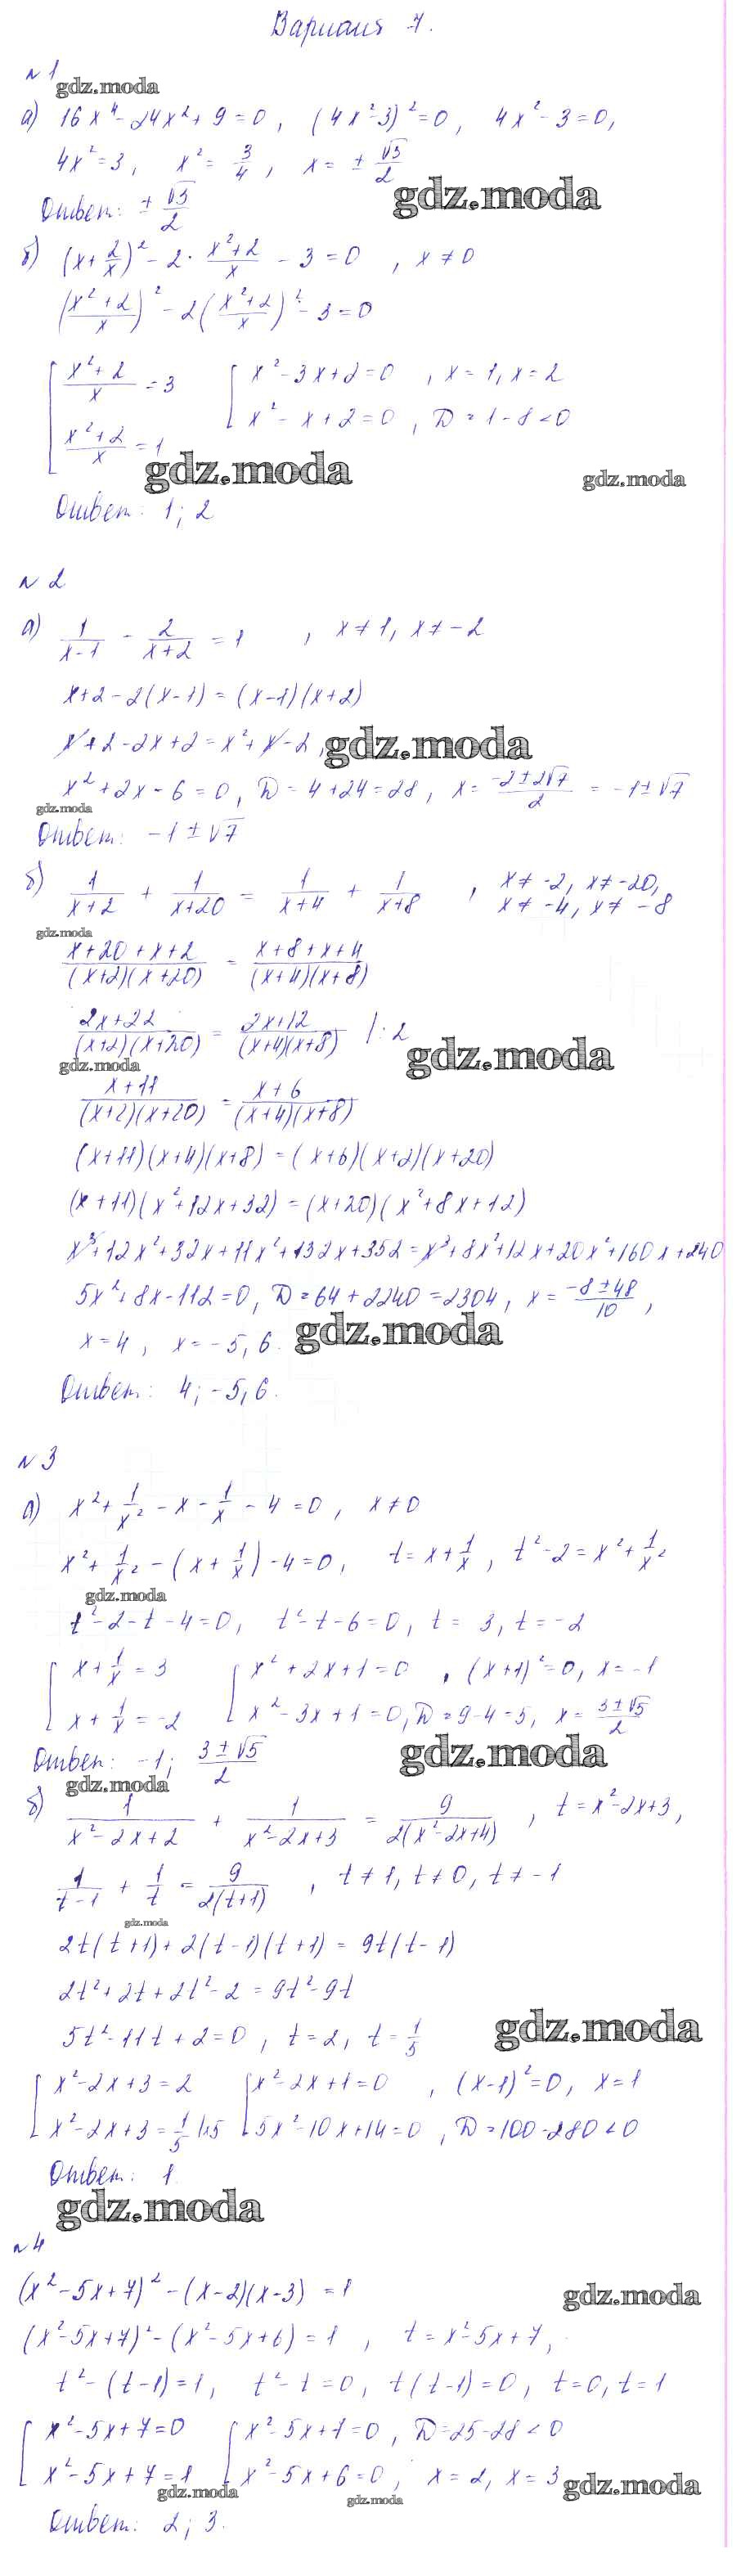 Вариант 7.
№1
gdz.moda
а) 16x⁴-24x²+9=0, (4x²-3)²=0, 4x²-3=0,
4x²=3, x²=3/4, x=±√3/2
gdz.moda
Ответ: ±√3/2
б) (x+2/x)²-2·(x²+2)/x-3=0, x≠0
((x²+2)/x)²-2((x²+2)/x)²-3=0
[(x²+2)/x=3 [x²-3x+2=0, x=1, x=2
(x²+2)/x=1 x²-x+2=0, D=1-8<0
gdz.moda gdz.moda
Ответ: 1; 2
№2
а) 1/(x-1)-2/(x+2)=1, x≠1, x≠-2
x+2-2(x-1)=(x-1)(x+2)
x+2-2x+2=x²+x-2, gdz.moda
x²+2x-6=0, D=4+24=28, x=(-2±2√7)/2=-1±√7
gdz.moda
Ответ: -1±√7
б) 1/(x+2)+1/(x+20)=1/(x+4)+1/(x+8), x≠-2, x≠-20,
x≠-4, x≠-8
gdz.moda
(x+20+x+2)/((x+2)(x+20))=(x+8+x+4)/((x+4)(x+8))
(2x+22)/((x+2)(x+20))=(2x+12)/((x+4)(x+8)) |:2
gdz.moda gdz.moda
(x+11)/((x+2)(x+20))=(x+6)/((x+4)(x+8))
(x+11)(x+4)(x+8)=(x+6)(x+2)(x+20)
(x+11)(x²+12x+32)=(x+20)(x²+8x+12)
x³+12x²+32x+11x²+132x+352=x³+8x²+12x+20x²+160x+240
5x²+8x-112=0, D=64+2240=2304, x=(-8±48)/10,
x=4, x=-5,6. gdz.moda
Ответ: 4; -5,6.
№3
а) x²+1/x²-x-1/x-4=0, x≠0
x²+1/x²-(x+1/x)-4=0, t=x+1/x, t²-2=x²+1/x²
gdz.moda
t²-2-t-4=0, t²-t-6=0, t=3, t=-2
[x+1/x=3 [x²+2x+1=0, (x+1)²=0, x=-1
x+1/x=-2 x²-3x+1=0, D=9-4=5, x=(3±√5)/2
Ответ: -1; (3±√5)/2 gdz.moda
gdz.moda
б) 1/(x²-2x+2)+1/(x²-2x+3)=9/(2(x²-2x+4)), t=x²-2x+3,
1/(t-1)+1/t=9/(2(t+1)), t≠1, t≠0, t≠-1
gdz.moda
2t(t+1)+2(t-1)(t+1)=9t(t-1)
2t²+2t+2t²-2=9t²-9t
5t²-11t+2=0, t=2, t=1/5 gdz.moda
[x²-2x+3=2 [x²-2x+1=0, (x-1)²=0, x=1
x²-2x+3=1/5 |·5 5x²-10x+14=0, D=100-280<0
Ответ: 1
gdz.moda
№4
(x²-5x+7)²-(x-2)(x-3)=1 gdz.moda
(x²-5x+7)²-(x²-5x+6)=1, t=x²-5x+7,
t²-(t-1)=1, t²-t=0, t(t-1)=0, t=0, t=1
[x²-5x+7=0 [x²-5x+7=0, D=25-28<0
x²-5x+7=1 x²-5x+6=0, x=2, x=3
gdz.moda gdz.moda gdz.moda
Ответ: 2; 3.